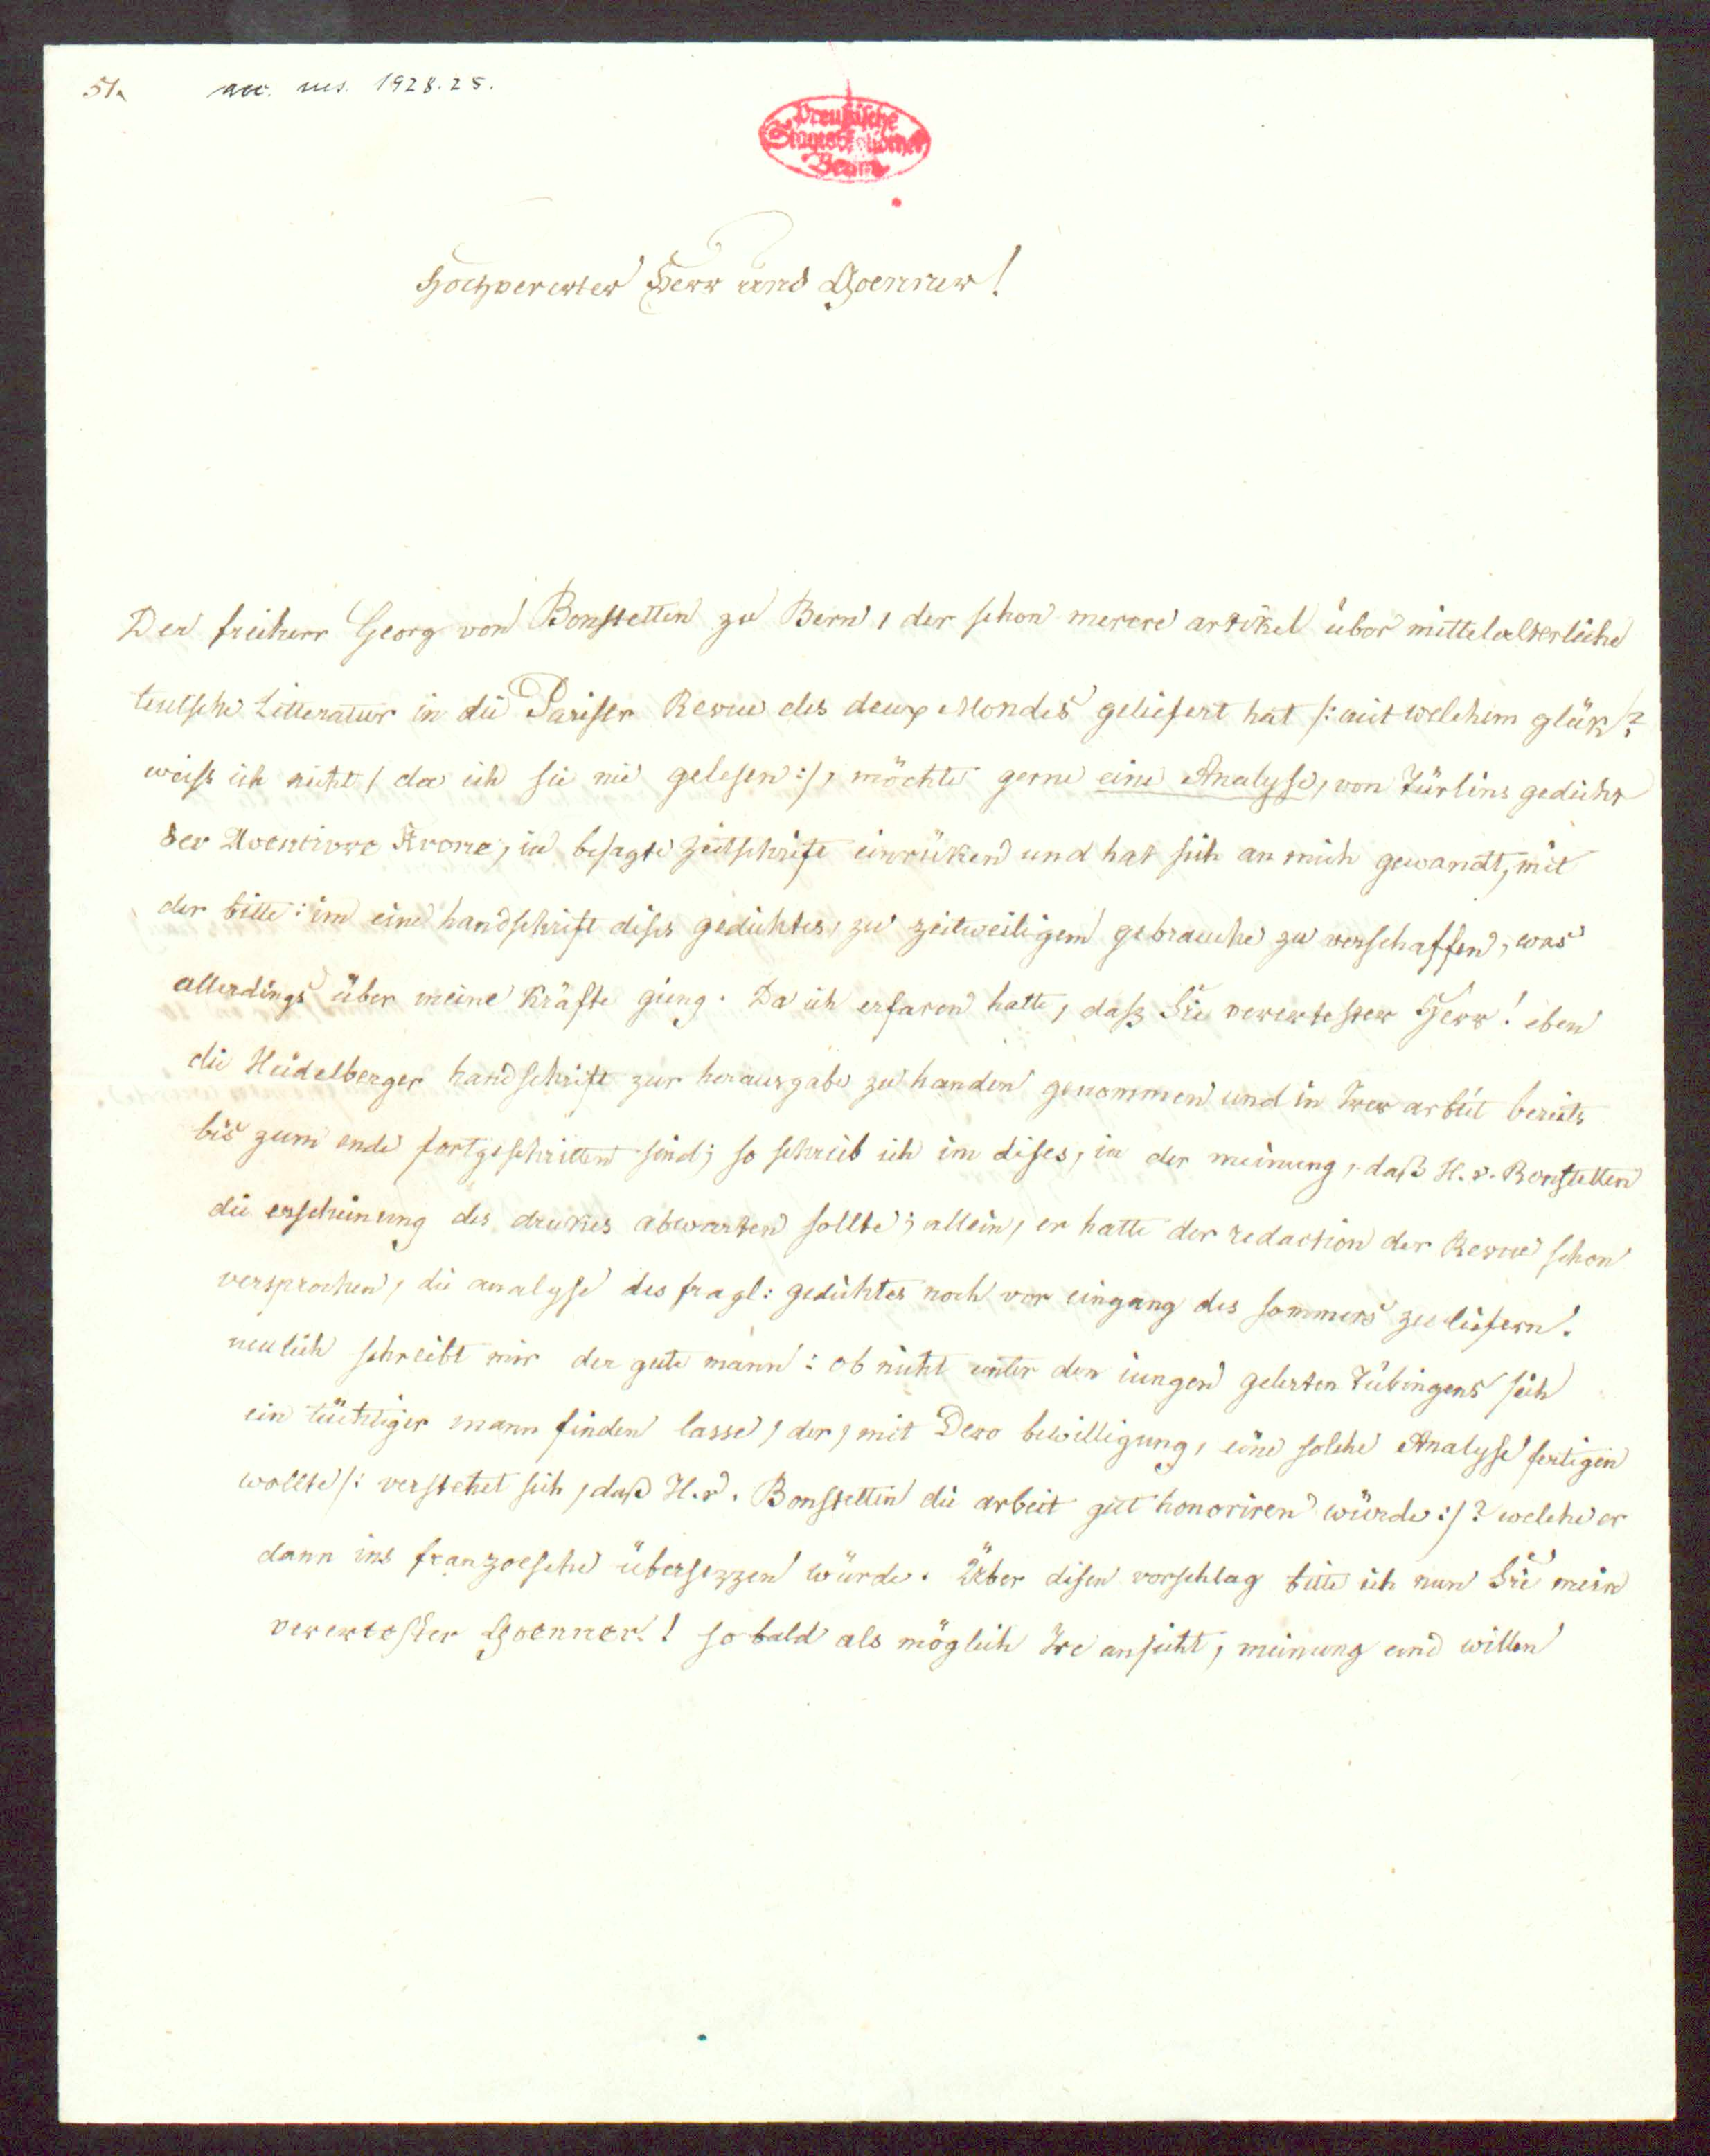 51.
acc. ms. 1928.25.
Preußische
Staatsbibliothek
Berlin
Hochvererter Herr und Goenner!
Der freiherr Georg von Bonstetten zu Bern, der schon merere artikel über mittelalterliche
teutsche Litteratur in die Pariser Revue des deux Mondes geliefert hat /: mit welchem glük?
weiss ich nicht, da ich sie nie gelesen :/, möchte gerne eine Analyse, von Türlins gedicht
der Aventivre Krone, in besagte zeitschrift einrüken und hat sich an mich gewandt, mit
der bitte: im eine handschrift dises gedichtes, zu zeitweiligem gebrauche zu verschaffen, was
allerdings über meine Kräfte gieng. Da ich erfaren hatte, dasz Sie verertester Herr! eben
die Heidelberger handschrift zur herausgabe zu handen genommen und in Irer arbeit bereits
bis zum ende fortgeschritten sind; so schreib ich im dises, in der meinung, daß H. v. Bonstetten
die erscheinung des drukes abwarten sollte; allein, er hatte der redaction der Revue schon
versprochen, die analyse des fragl: gedichtes noch vor eingang des sommers zu liefern.
neulich schreibt mir der gute mann: ob nicht unter den iungen gelerten Tübingens sich
ein tüchtiger mann finden lasse, der, mit Dero bewilligung, eine solche Analyse fertigen
wollte /: verstehet sich, daß H. v. Bonstetten die arbeit gut honoriren würde :/? welche er
dann ins franzoesche übersezzen würde. Über disen vorschlag bitte ich nun Sie mein
verertester Goenner! so bald als möglich Ire ansicht, meinung und willen